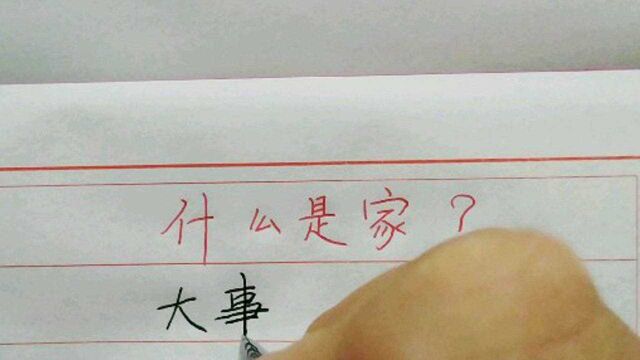 什么是家？
大事